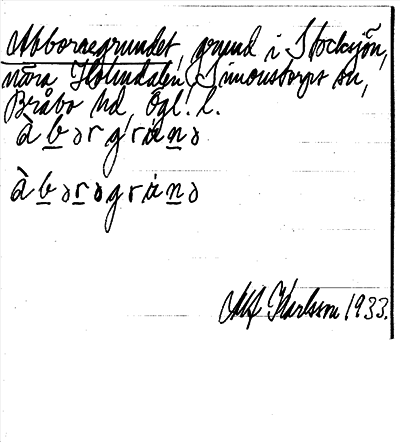 Abboraegrundet, grund i Stocksjön,
nära Holmdalen, Simonstorps sn,
Bråbo hd, Ögl. l.
àbərgránə
àbərəgránə
Alf Karlsson 1933.